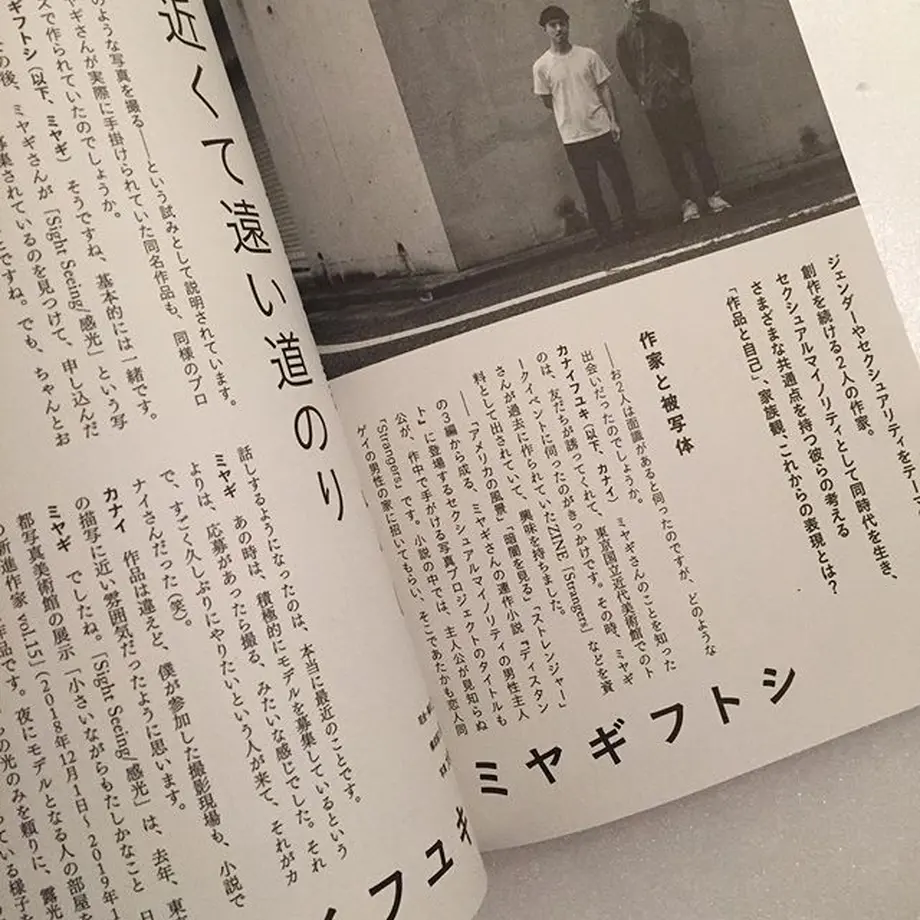 ジェンダーやセクシュアリティをテー
創作を続ける2人の作家。
セクシュアルマイノリティとして同時代を生き、
さまざまな共通点を持つ彼らの考える
「作品と自己」、家族観、これからの表現とは?
作家と被写体
――お2人は面識があると伺ったのですが、どのような
出会いだったのでしょうか。
カナイフユキ(以下、カナイ) ミヤギさんのことを知った
のは、友だちが誘ってくれて、東京国立近代美術館でのト
ークイベントに伺ったのがきっかけです。その時、ミヤギ
さんが過去に作られていたZINE『Strangers』などを資
料として出されていて、興味を持ちました。
――「アメリカの風景」「暗闇を見る」「ストレンジャー」
の3編から成る、ミヤギさんの連作小説『ディスタン
ト』に登場するセクシュアルマイノリティの男性主人
公が、作中で手がける写真プロジェクトのタイトルも
「Strangers」です。小説の中では、主人公が見知らぬ
ゲイの男性の家に招いてもらい、そこであたかも恋人同
ミヤギフトシ
イフユキ
近くて遠い道のり
のような写真を撮る――という試みとして説明されています。
ヤギさんが実際に手掛けられていた同名作品も、同様のプロ
スで作られていたのでしょうか。
ギフトシ(以下、ミヤギ) そうですね、基本的には一緒です。
の後、ミヤギさんが「Sight Seeing/感光」という写
募集されているのを見つけて、申し込んだ
ですね。でも、ちゃんとお
話しするようになったのは、本当に最近のことです。
ミヤギ あの時は、積極的にモデルを募集しているという
よりは、応募があったら撮る、みたいな感じでした。それ
で、すごく久しぶりにやりたいという人が来て、それがカ
ナイさんだった(笑)。
カナイ 作品は違えど、僕が参加した撮影現場も、小説で
の描写に近い雰囲気だったように思います。
ミヤギ でしたね。「Sight Seeing/感光」は、去年、東
都写真美術館の展示「小さいながらもたしかなこと 日
の新進作家 vol.15」(2018年12月1日〜2019年1
作品です。夜にモデルとなる人の部屋を
の光のみを頼りに、露光
っている様子を